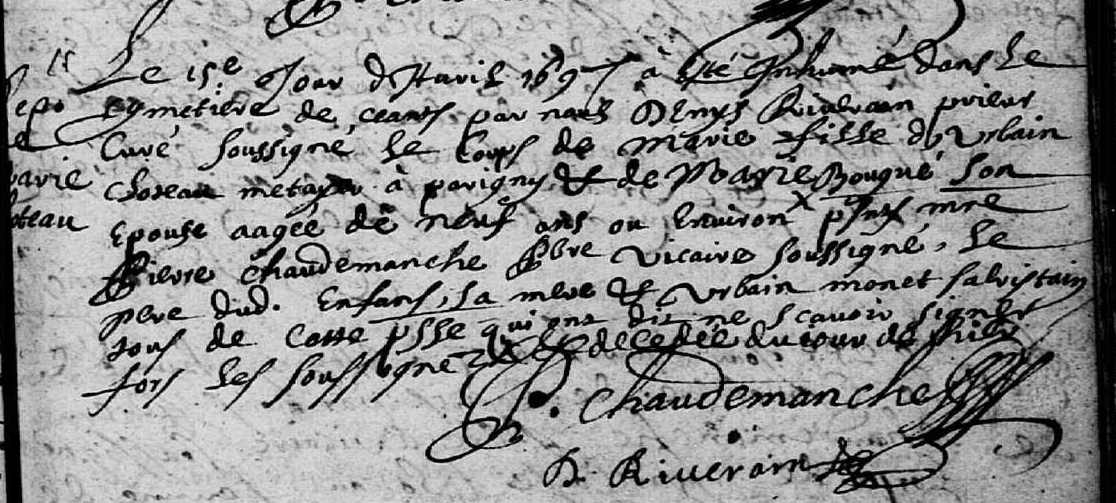 15
Le 15e Jour d'Avril 1697 a esté Inhumé dans Le
sepo Cymetiere de ceans par nous Denys Riverain prieur
Curé soussigné Le Corps de Marie fille d'Urbain
marie Choteau metayer à parigny & de Marie Bouqué son
Choteau Epouse aagée de neuf ans ou Environ x pñts mre
Pierre Chaudemanche Pbre vicaire soussigné, Le
pere dud. Enfans, sa mere & Urbain monet sacristain
tous de Cette psse qui ont dit ne scavoir signer
fors les soussignez x decedée du jour de hier
P. Chaudemanche
D. Riverain